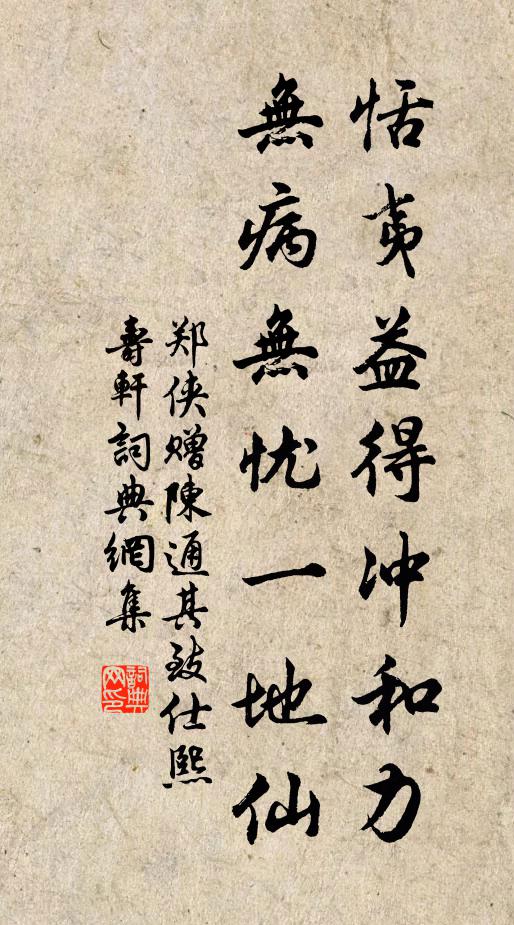 恬夷益得冲和力
無病無忧一地仙
郑侠赠陳通其致仕熙
壽軒詞典網集
詞典网印